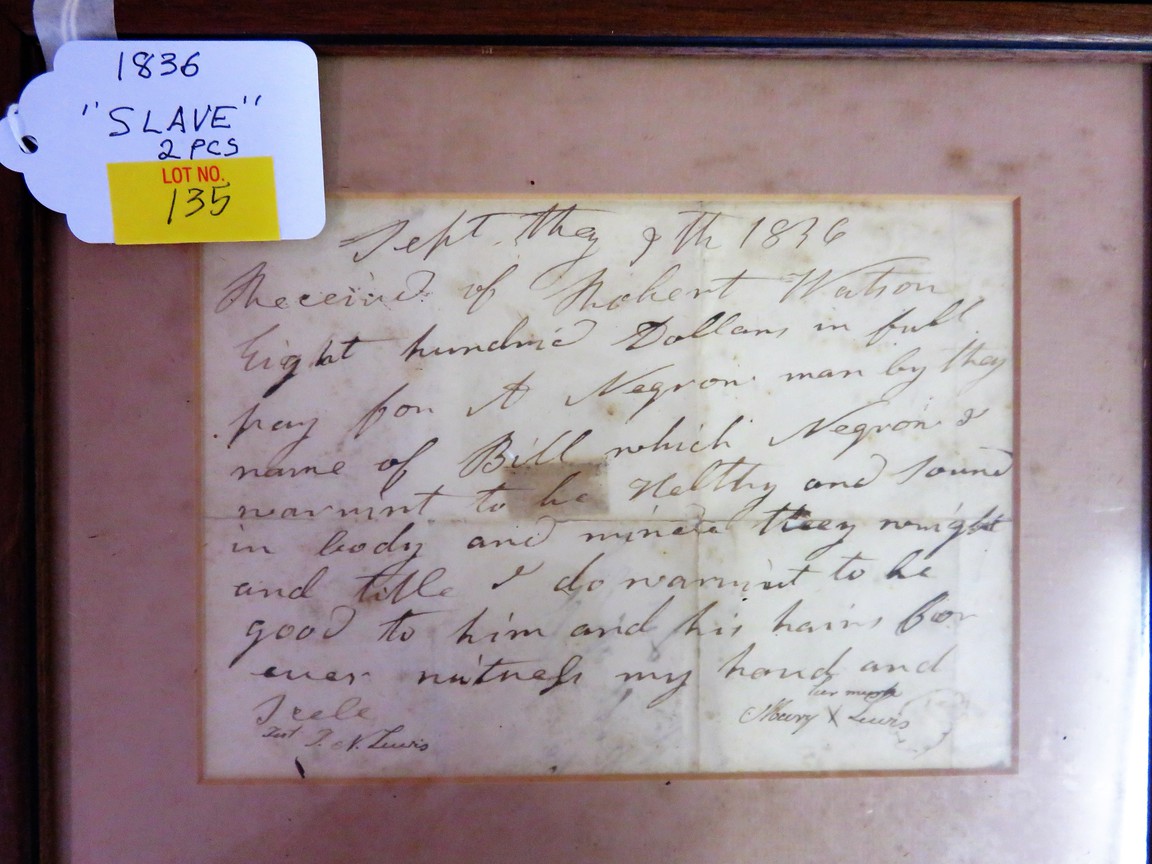 1836
"SLAVE"
2 PCS
LOT NO.
135
Sept. they 9th 1836
Received of Robert Watson
Eight hundrid Dollars in full
pay for A Negron man by they
name of Bill which Negron I
warrint to be Helthy and sound
in body and minde they wright
and title I do warrint to be
good to him and his hairs for
ever witness my hand and
Seele
her mark
Mary X Lewis
Test J. N. Lewis